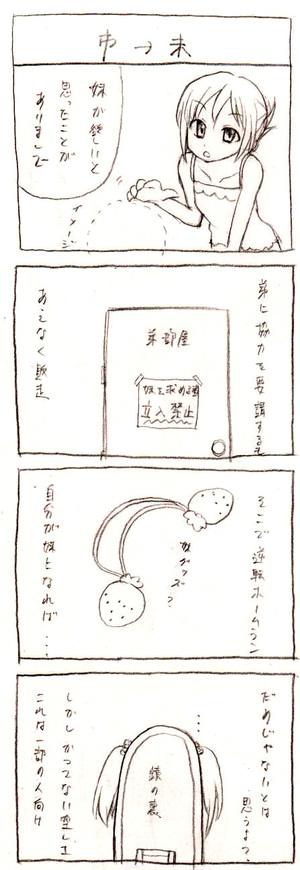 妹が欲しいと
思ったことが
ありまして
イメージ
弟に協力を要請するも
あえなく敗走
弟部屋
妹を求める者
立入禁止
そこで逆転ホームラン
妹グッズ?
自分が妹になれば...
だめじゃないとは
思うよつ、
...
鏡の裏
しかしかつてない型し
これは一部の人向け